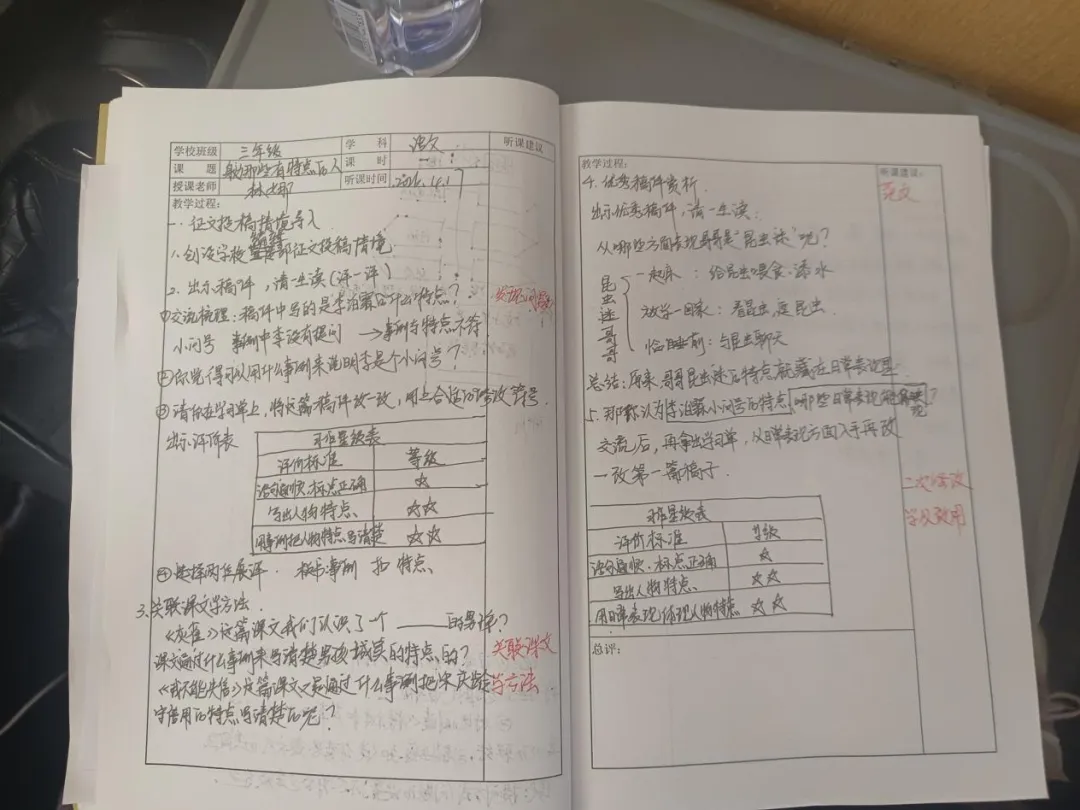 学校班级 三年级 学科 语文 听课建议
课题 身边那些有特点的人 课时
授课老师 听课时间
教学过程:
一、征文投稿情境导入
1.创设学校 部征文投稿情境
2.出示稿件,请一生读(评一评)
①交流梳理:稿件中写的是李泊霖什么特点? 发现问题
小问号 事例中李没有提问 →事例与特点不符
②你觉得可以用什么事例来说明李是个小问号?
③请你在学习单上,将这篇稿件改一改,用上合适的修改符号.
出示评价表
习作星级表
评价标准 等级
语句通顺、标点正确 ☆
写出人物特点 ☆☆
用事例把人物特点写清楚 ☆☆
④选择两生展评. 板书事例 扣 特点
3.关联课文学方法.
《灰雀》这篇课文我们认识了一个 的男孩?
课文通过什么事例来写清楚男孩诚实的特点的? 关联课文
《我不能失信》这篇课文又是通过什么事例把宋庆龄 学方法
守信用的特点写清楚的呢?
教学过程: 听课建议:
4.优秀稿件赏析. 范文
出示优秀稿件,请一生读.
从哪些方面表现哥哥是“昆虫迷”呢?
昆虫迷哥哥
一起床:给昆虫喂食、添水
放学一回家:看昆虫、逗昆虫
临睡前:与昆虫聊天
总结:原来,哥哥昆虫迷的特点就藏在日常表现里.
5.那你认为李泊霖小问号的特点,哪些日常表现能体现?
交流后,再拿出学习单,从日常表现方面入手再改
一改第一篇稿子. 二次修改
学以致用
习作星级表
评价标准 等级
语句通顺、标点正确 ☆
写出人物特点 ☆☆
用日常表现体现人物特点 ☆☆
总评: